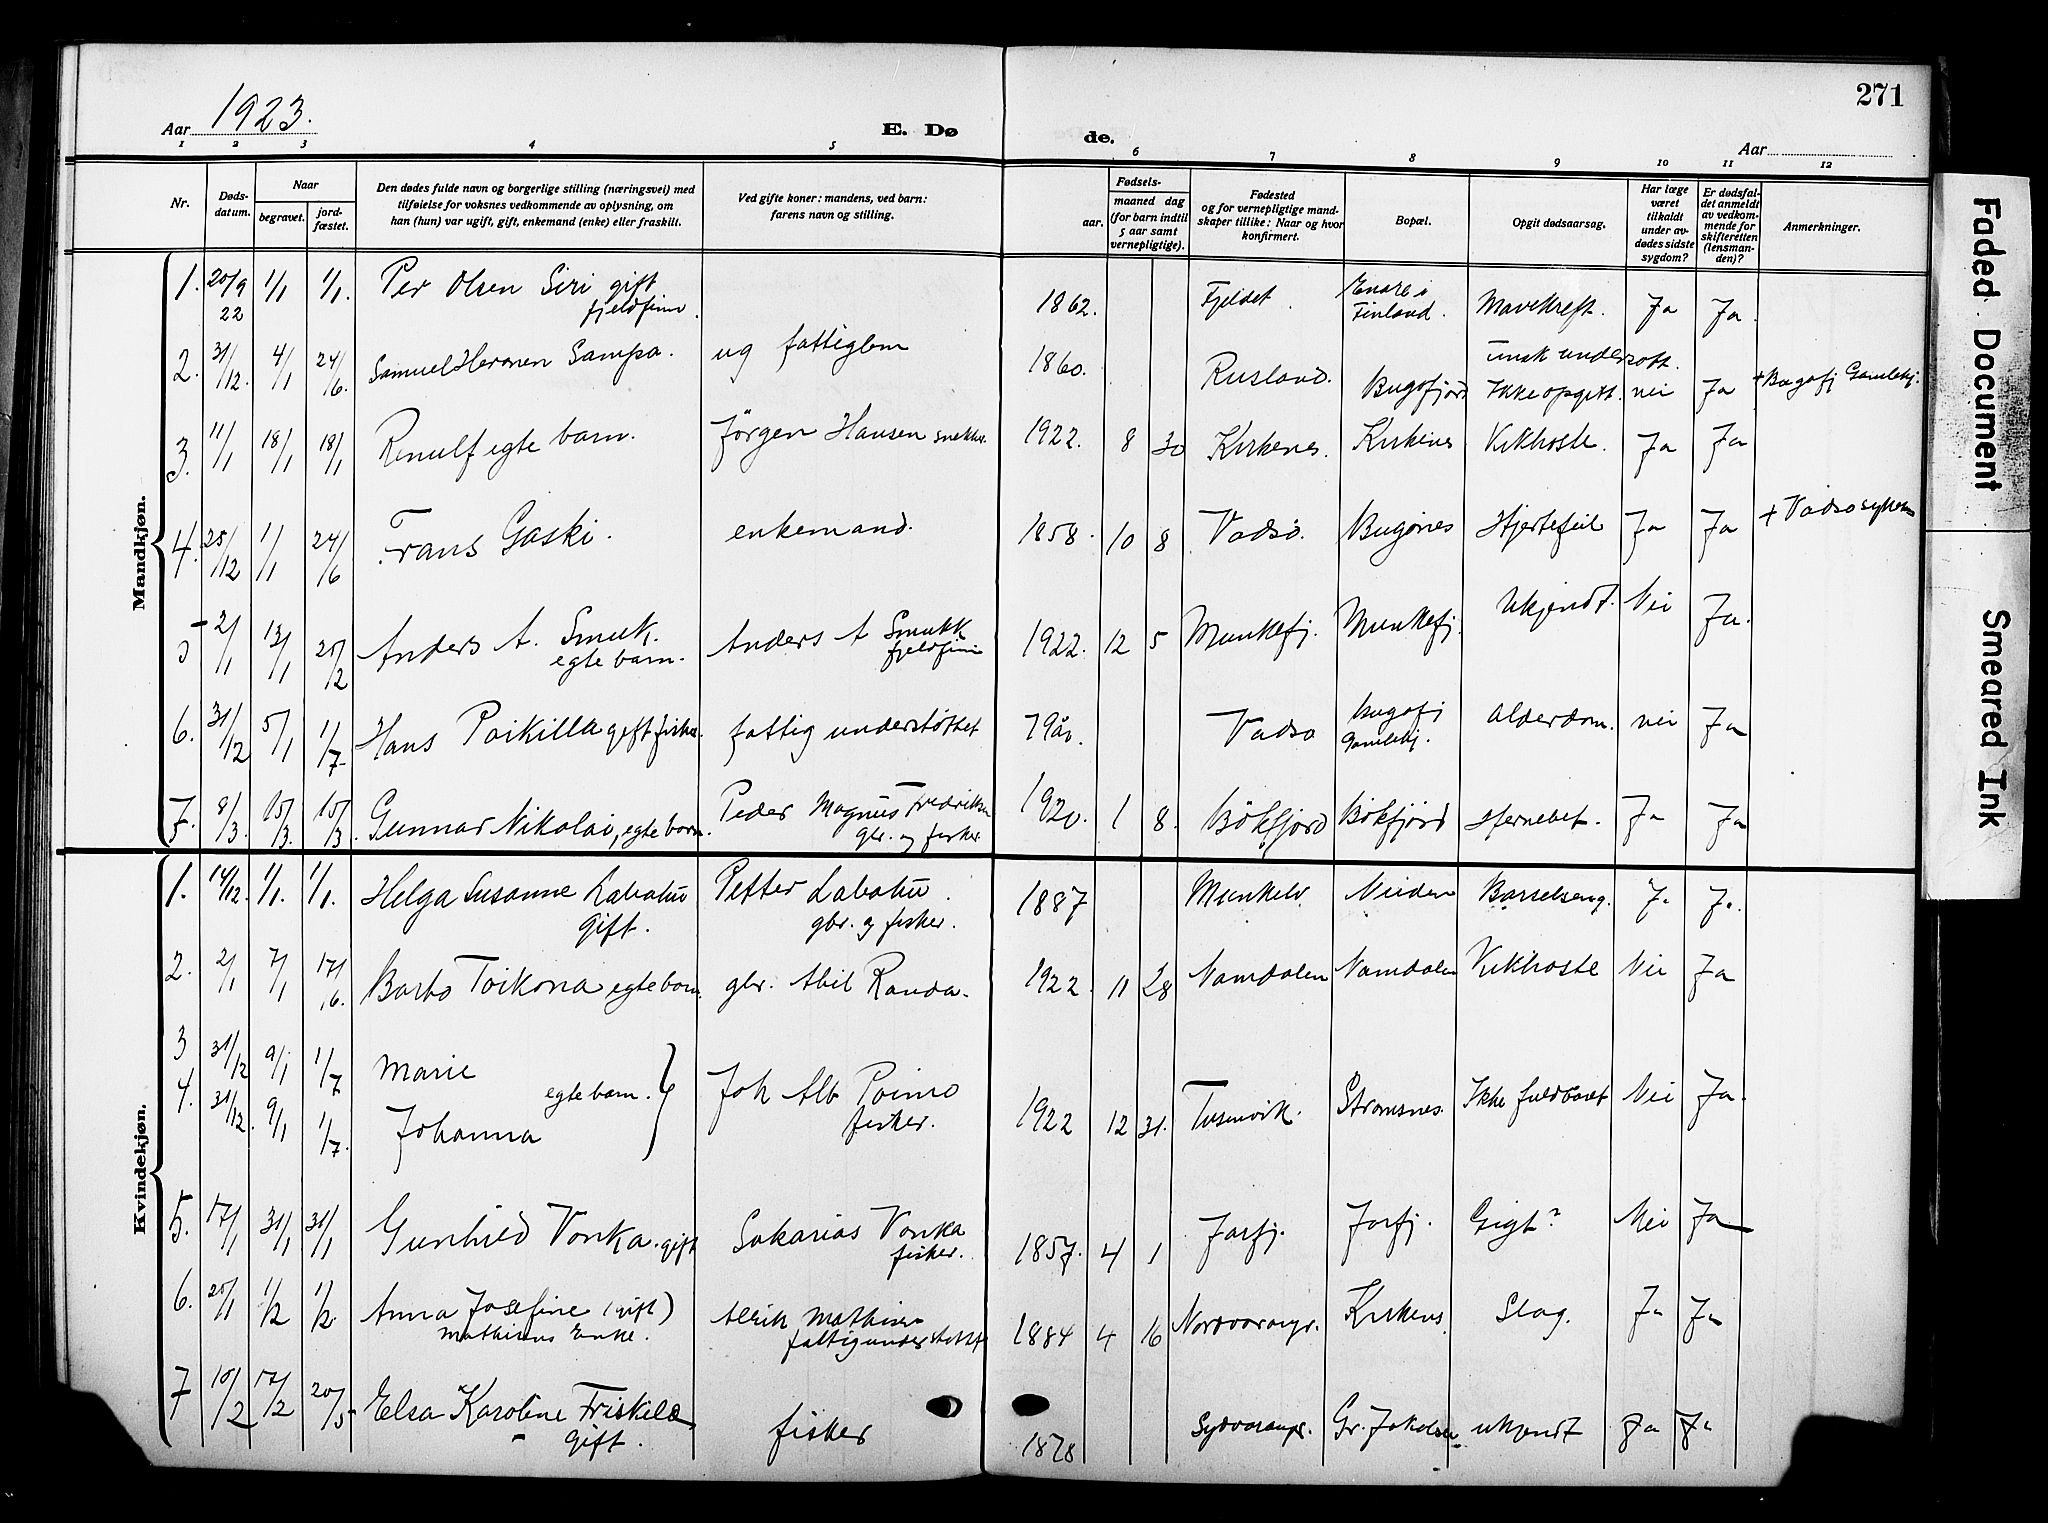 271
Aar 1923.
E. Døde.
Aar
1 2 3 4 5 6 7 8 9 10 11 12
Nr.
Dødsdatum.
Naar
begravet.
jordfæstet.
Den dødes fulde navn og borgerlige stilling (næringsvei) med
tilføielse for voksnes vedkommende av oplysning, om
han (hun) var ugift, gift, enkemand (enke) eller fraskilt.
Ved gifte koner: mandens, ved barn:
farens navn og stilling.
Fødsels-
aar.
maaned dag
(for barn indtil
5 aar samt
vernepligtige).
Fødested
og for vernepligtige mand-
skaper tillike: Naar og hvor
konfirmert.
Bopæl.
Opgit dødsaarsag.
Har læge
været
tilkaldt
under av-
dødes sidste
sygdom?
Er dødsfal-
det anmeldt
av vedkom-
mende for
skifteretten
(lensman-
den)?
Anmerkninger.
Mandkjøn.
1. 20/9 22 1/1 1/1. Per Olsen Siri gift fjeldfinn. 1862. Fjeldet. Enare i Finland. Mavekreft. Ja Ja.
2. 31/12. 4/1 24/6. Samuel Hermen Sampa. ug fattiglem 1860. Rusland. Bugøfjord Ikke opgitt. nei Ja + Bugøfj Gamlekj.
3. 11/1 18/1 18/1 Renulf egte barn. Jørgen Hansen snekker. 1922. 8 30 Kirkenes. Kirkenes Kikhoste. Ja Ja
4. 25/12 1/1 24/6 Frans Gaski. enkemand. 1858. 10 8 Vadsø. Bugønes Hjertefeil Ja Ja + Vadsø sykehus
5 2/1 13/1 25/2 Anders A. Smuk. egte barn. Anders A Smukk fjeldfinn 1922. 12 5 Munkefj. Munkefj. Ukjendt. Nei Ja.
6. 31/12 5/1 1/7. Hans Poikilla gift fisker. fattig understøttet 79 år. Vadsø Bugøfj Gamlekj. Alderdom. nei Ja
7. 8/3. 15/3. 15/3 Gunnar Nikolai, egte barn. Peder Magnus Fredriksen gbr. og fisker 1920. 1 8. Bökfjord Bökfjord Hernebet. Ja Ja
Kvindekjøn.
1. 14/12. 1/1. 1/1. Helga Susanne Labahu gift. Petter Labahu. gbr. og fisker. 1887 Munkelv Neiden Barselseng. Ja Ja.
2. 2/1 7/1 17/6. Barbo Toikona egte barn. gbr. Abil Randa. 1922. 11 28 Namdalen Namdalen Kikhoste Nei Ja
3 31/12 9/1 1/7 Marie
4. 31/12. 9/1 1/7. Johanna egte barn. } Joh Alb Poimo fisker. 1922 12 31. Tusenvik. Strømsnes. Ikke fuldbaaret Nei Ja.
5. 17/1 31/1 31/1 Gunhild Vonka. gift Sakarias Vonka fisker. 1857. 4 1 Jarfj. Jarfj. Gigt? Nei Ja
6. 25/1 1/2 1/2. Anna Josefine (gift) Mathisens Enke. Alrik Mathisen fattigunderstøttet 1884 4 16 Nordvaranger. Kirkenes. Slag. Ja Ja
7 15/2 17/2 20/5 Elsa Karoline Friskilæ gift. fisker 1878 Sydvaranger. Gr. Jakobselv ukjendt Ja Ja
Faded Document
Smeared Ink